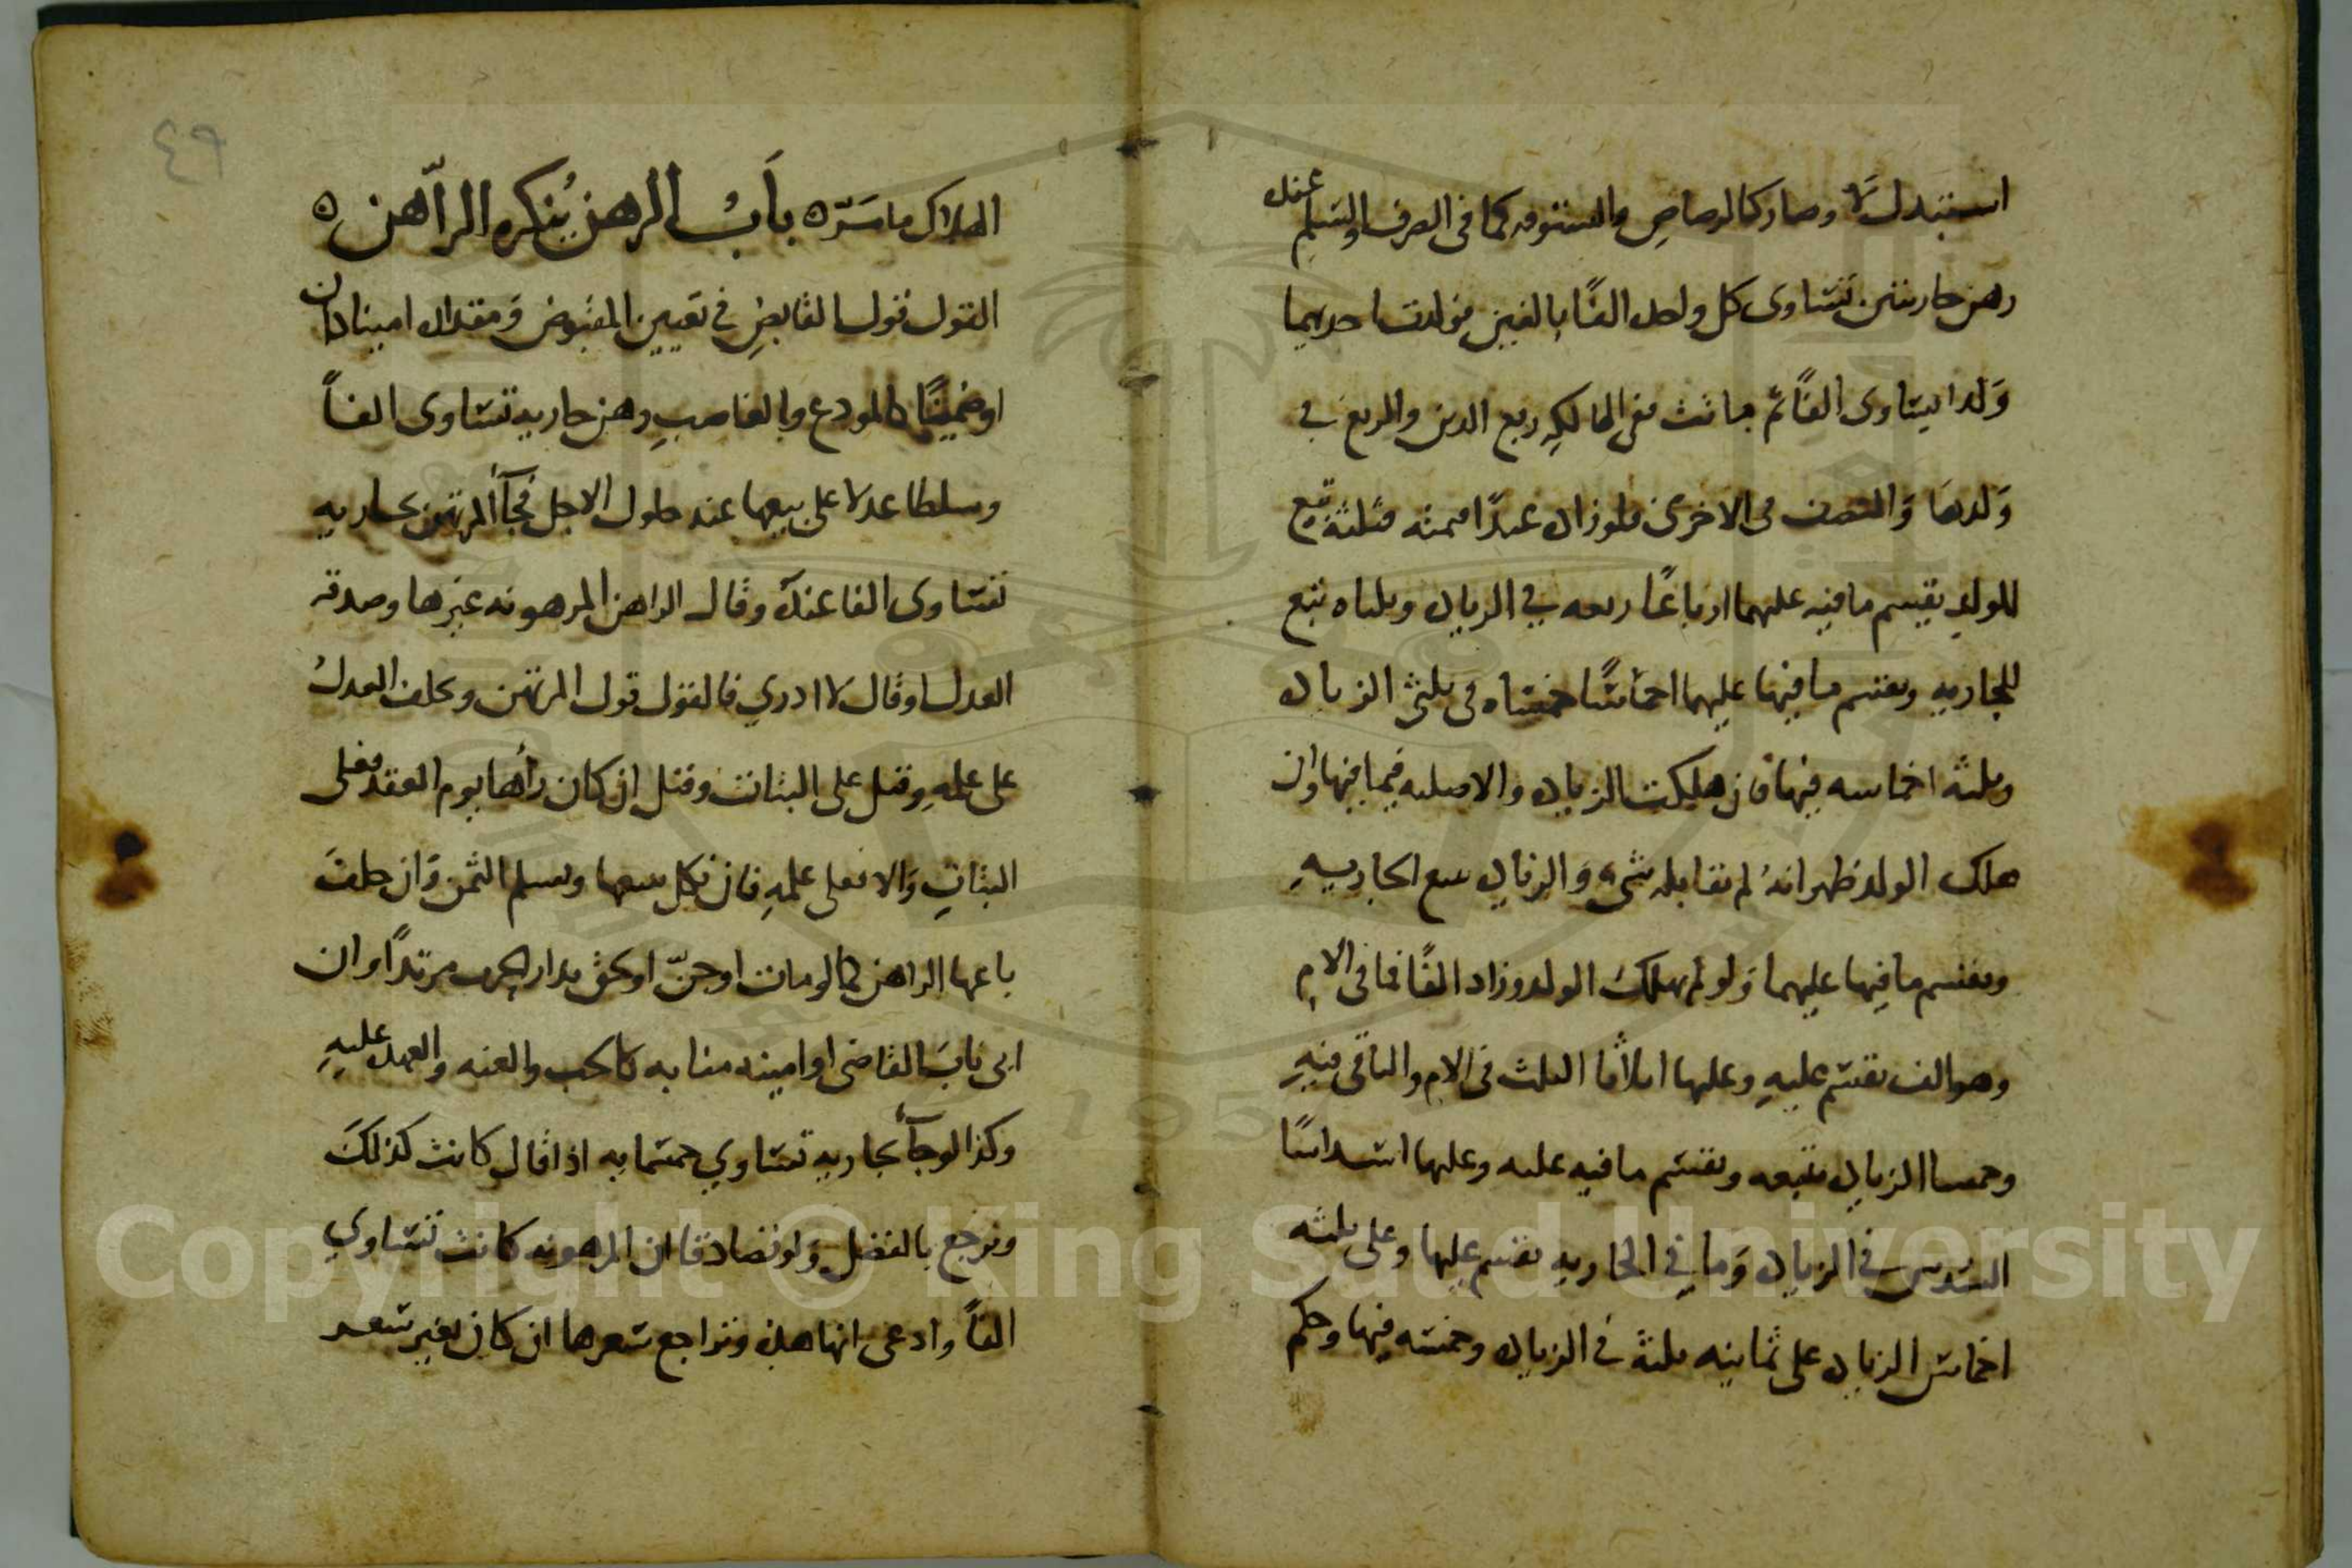 استبدل لا وصار كالرصاص والستوقه كما فى الصرف والسلم عنده
رهن جاريتين تساوى كل واحده الفًا بالفين فولدت احديهما
وَلدا يساوى الفًا ثم ماتت ففى الهالكه ربع الدين والربع فى
وَلدهَا وَالنصف فى الاخرى فلو زاده عبدًا قيمته فثلثه تبع
للولد يقسم ما فيه عليهما ارباعًا ربعه في الزياده وثلثاه تبع
للجاريه ويقسم ما فيها عليهما اخماسًا خمساه فى ثلثى الزياده
وثلثه اخماسه فيها فان هلكت الزياده والاصليه فيما فيها وان
هلك الولد ظهر انهُ لم يقابله شىء وَالزياده تبع الجاريهِ
ويقسم ما فيها عليهما وَلو لم يهلك الولد وزاد الفًا فما فى الام
وهو الف يقسم عليهِ وعليها اثلاثًا الثلث فى الام والباقى فيهِ
وخمسا الزياده يتبعه ويقسم ما فيه عليه وعليها اسداسًا
السدس في الزياده وَما في الجاريه يقسم عليها وعلى ثلثه
اخماس الزياده على ثمانيه ثلثة فى الزياده وخمسه فيها وحكم
الهلاك ما مَرّ ه بَابُ الرهن يُنكره الراهن ه
القول قول القابضِ في تعيين المقبوض وَمقداره امينا كان
او ضمينًا كالمودع والغاصبِ رهن جاريه تساوى الفاً
وسلطا عدلا على بيعها عند حلول الاجل فجآ المرتهن بجاريه
تساوى الفا عنده وقال الراهن المرهونه غيرها وصدقه
العدل او قال لا ادري فالقول قول المرتهن ويحلف العدلُ
على علمهِ وقيل على البتات وقيل ان كان رأها يوم العقد فعلى
البتاتِ وَالا فعلى علمهِ فان نكل يبيعها ويسلم الثمن وَان حلفَ
باعها الراهن كما لو مات او جنّ او لحق بدار الحرب مرتدًا وان
ابى نابَ القاضى او امينه منابه كالحب والعنه والعهده عليهِ
وكذا لو جآ بجاريه تساوي خمسمايه اذا قال كانت كذلكَ
ويرجع بالفضل وَلو تصادقا ان المرهونه كانت تساوي
الفاً وادعى انها هذه وتراجع سعرها ان كان بغير سعر
٤٩
Copyright © King Saud University
1957